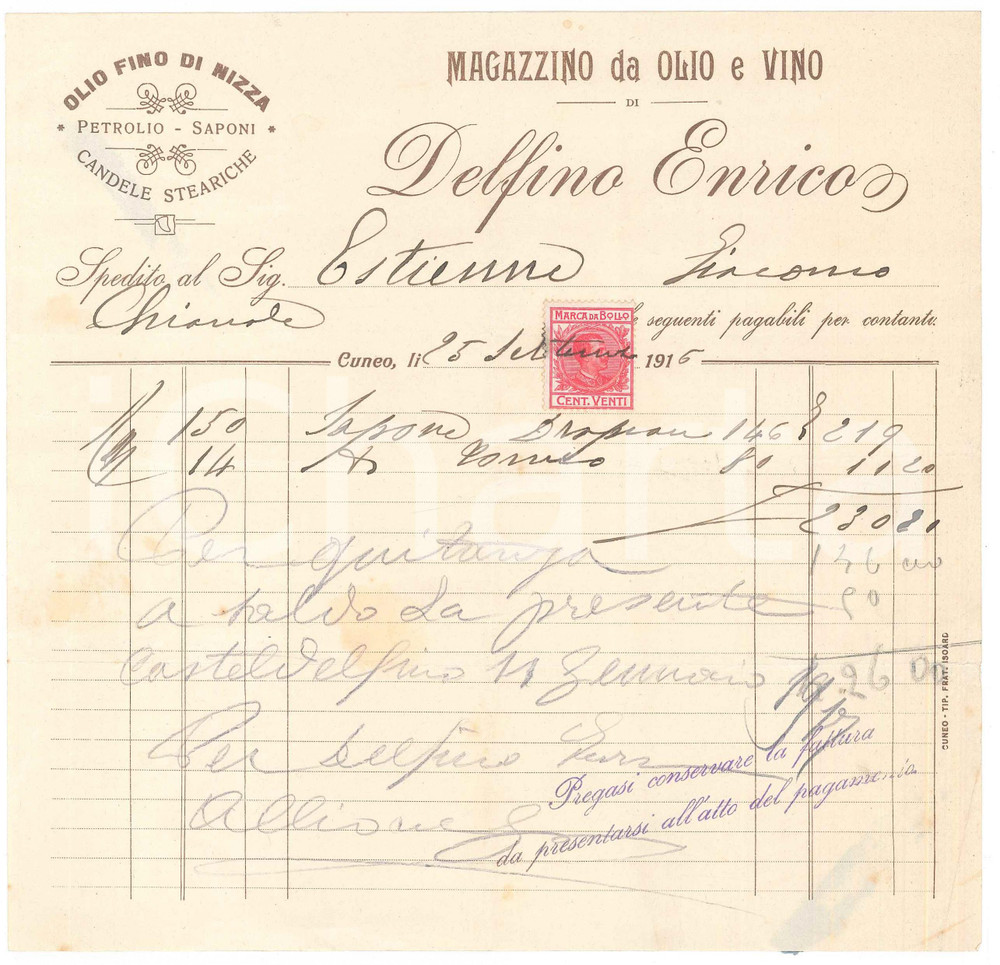 OLIO FINO DI NIZZA
* PETROLIO - SAPONI *
CANDELE STEARICHE
MAGAZZINO da OLIO e VINO
DI
Delfino Enrico
Spedito al Sig. Estienne Giacomo
Chianale
seguenti pagabili per contante.
MARCA DA BOLLO
CENT. VENTI
Cuneo, li 25 Settembre 1916
150 Sapone 146 £ 219
14 80 11 20
230 20
Per quitanza
146
a saldo la presente
80
Casteldelfino 11 Gennaio
26
Per Delfino
Allione
Pregasi conservare la fattura
da presentarsi all'atto del pagamento.
CUNEO - TIP. FRAT. ISOARD
iCharta